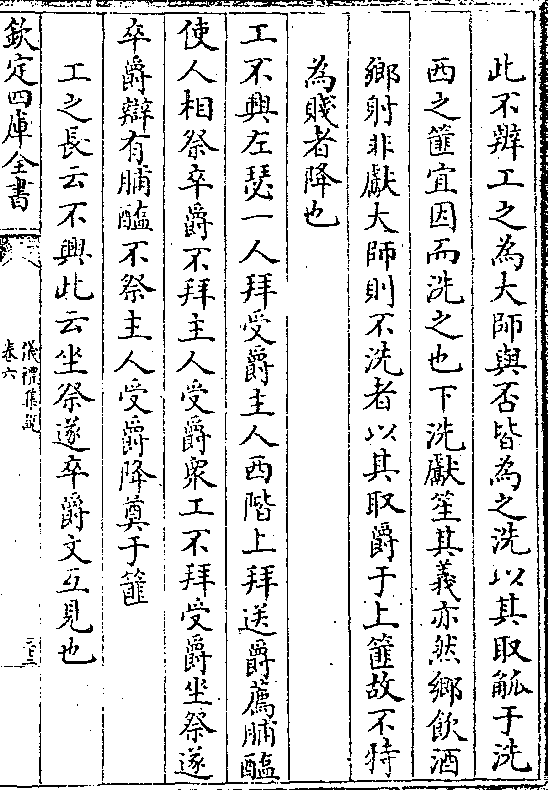 此不辨工之為大師與否皆為之洗以其取觚于洗
西之篚宜因而洗之也下洗獻笙其義亦然鄉飲酒
鄉射非獻大師則不洗者以其取爵于上篚故不特
為賤者降也
工不興左瑟一人拜受爵主人西階上拜送爵薦脯醢
使人相祭卒爵不拜主人受爵衆工不拜受爵坐祭遂
卒爵辯有脯醢不祭主人受爵降奠于篚
工之長云不興此云坐祭遂卒爵文互見也
欽定四庫全書
儀禮集說
卷六